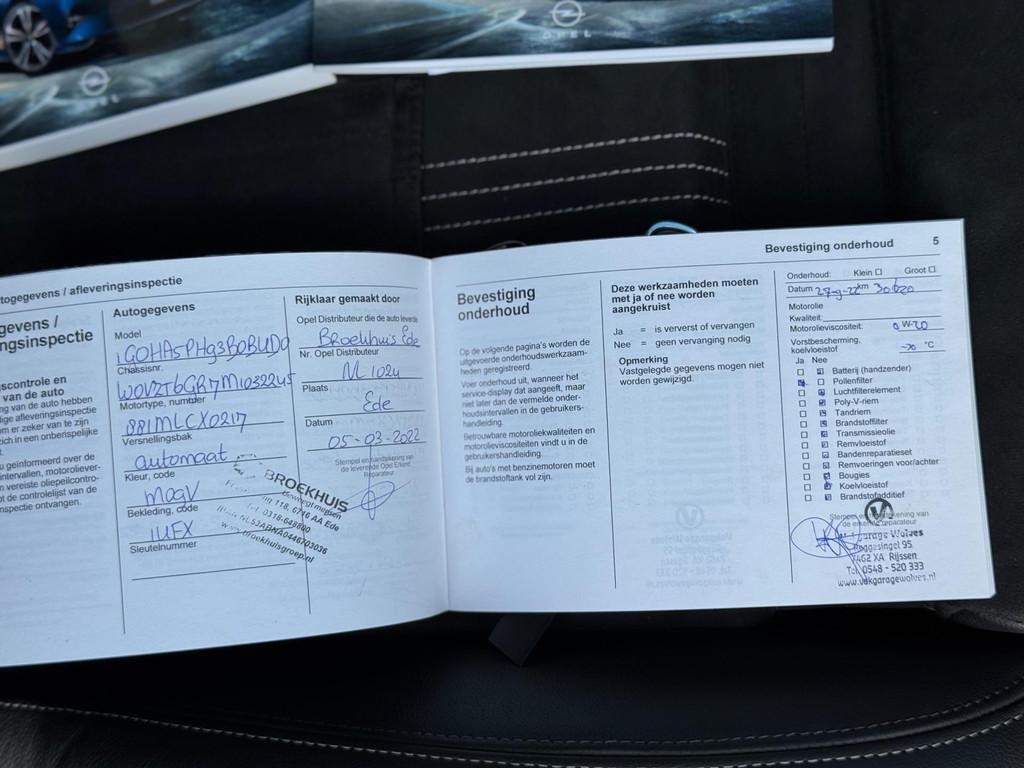 OPEL
OPEL
togegevens / afleveringsinspectie
gevens /
ngsinspectie
scontrole en
van de auto
ng van de auto hebben
lige afleveringsinspectie
om er zeker van te zijn
zich in een onberispelijke
t.
u geïnformeerd over de
intervallen, motoroliever-
n vereiste oliepeilcontro-
t de controlelijst van de
nspectie ontvangen.
Autogegevens
Model
Chassisnr.
W0VZT6GR7M1032245
Motortype, nummer
881MLCX0217
Versnellingsbak
automaat
Kleur, code
M0GV
Bekleding, code
IUFX
Sleutelnummer
Rijklaar gemaakt door
Opel Distributeur die de auto leverde
Broekhuis Ede
Nr. Opel Distributeur
NL 1024
Plaats
Ede
Datum
05-03-2022
Stempel en handtekening van
de leverende Opel Erkend
Reparateur
BROEKHUIS
118, 6716 AA Ede
0318-648800
www.broekhuisgroep.nl
Bevestiging onderhoud 5
Bevestiging
onderhoud
Op de volgende pagina's worden de
uitgevoerde onderhoudswerkzaam-
heden geregistreerd.
Voer onderhoud uit, wanneer het
service-display dat aangeeft, maar
niet later dan de vermelde onder-
houdsintervallen in de gebruikers-
handleiding.
Betrouwbare motoroliekwaliteiten en
motorolieviscositeiten vindt u in de
gebruikershandleiding.
Bij auto's met benzinemotoren moet
de brandstoftank vol zijn.
Deze werkzaamheden moeten
met ja of nee worden
aangekruist
Ja = is ververst of vervangen
Nee = geen vervanging nodig
Opmerking
Vastgelegde gegevens mogen niet
worden gewijzigd.
Onderhoud: Klein Groot
Datum 27-9-22 km 30620
Motorolie
Kwaliteit:
Motorolieviscositeit: 0W-20
Vorstbescherming,
koelvloeistof °C
Ja Nee
Batterij (handzender)
Pollenfilter
Luchtfilterelement
Poly-V-riem
Tandriem
Brandstoffilter
Transmissieolie
Remvloeistof
Bandenreparatieset
Remvoeringen voor/achter
Bougies
Koelvloeistof
Brandstofadditief
Stempel en handtekening van
de erkende reparateur
Garage Wolves
Roggesingel 95
7462 XA Rijssen
Tel. 0548 - 520 333
www.vakgaragewolves.nl